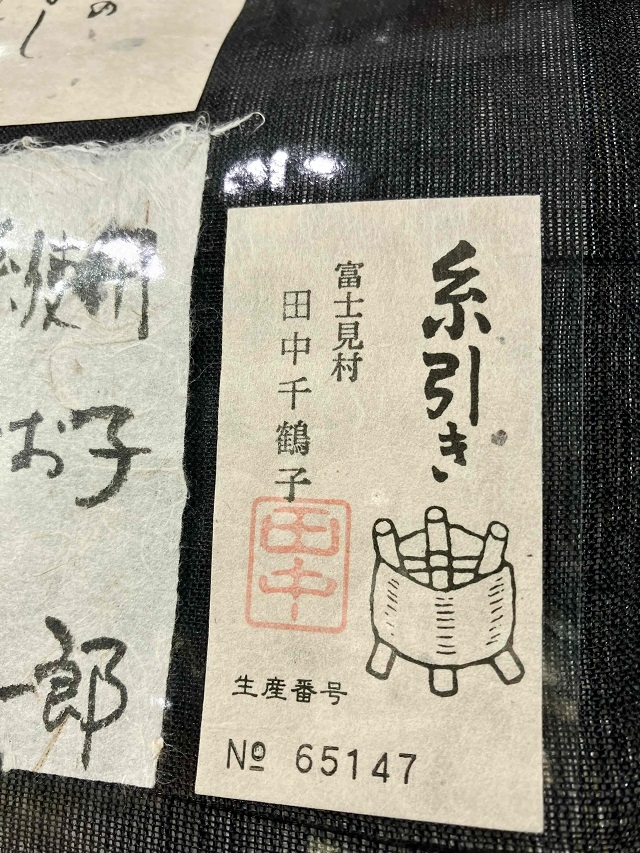 糸引き
富士見村
田中千鶴子
田中
生産番号
№ 65147
使用
お子
一郎
の
し